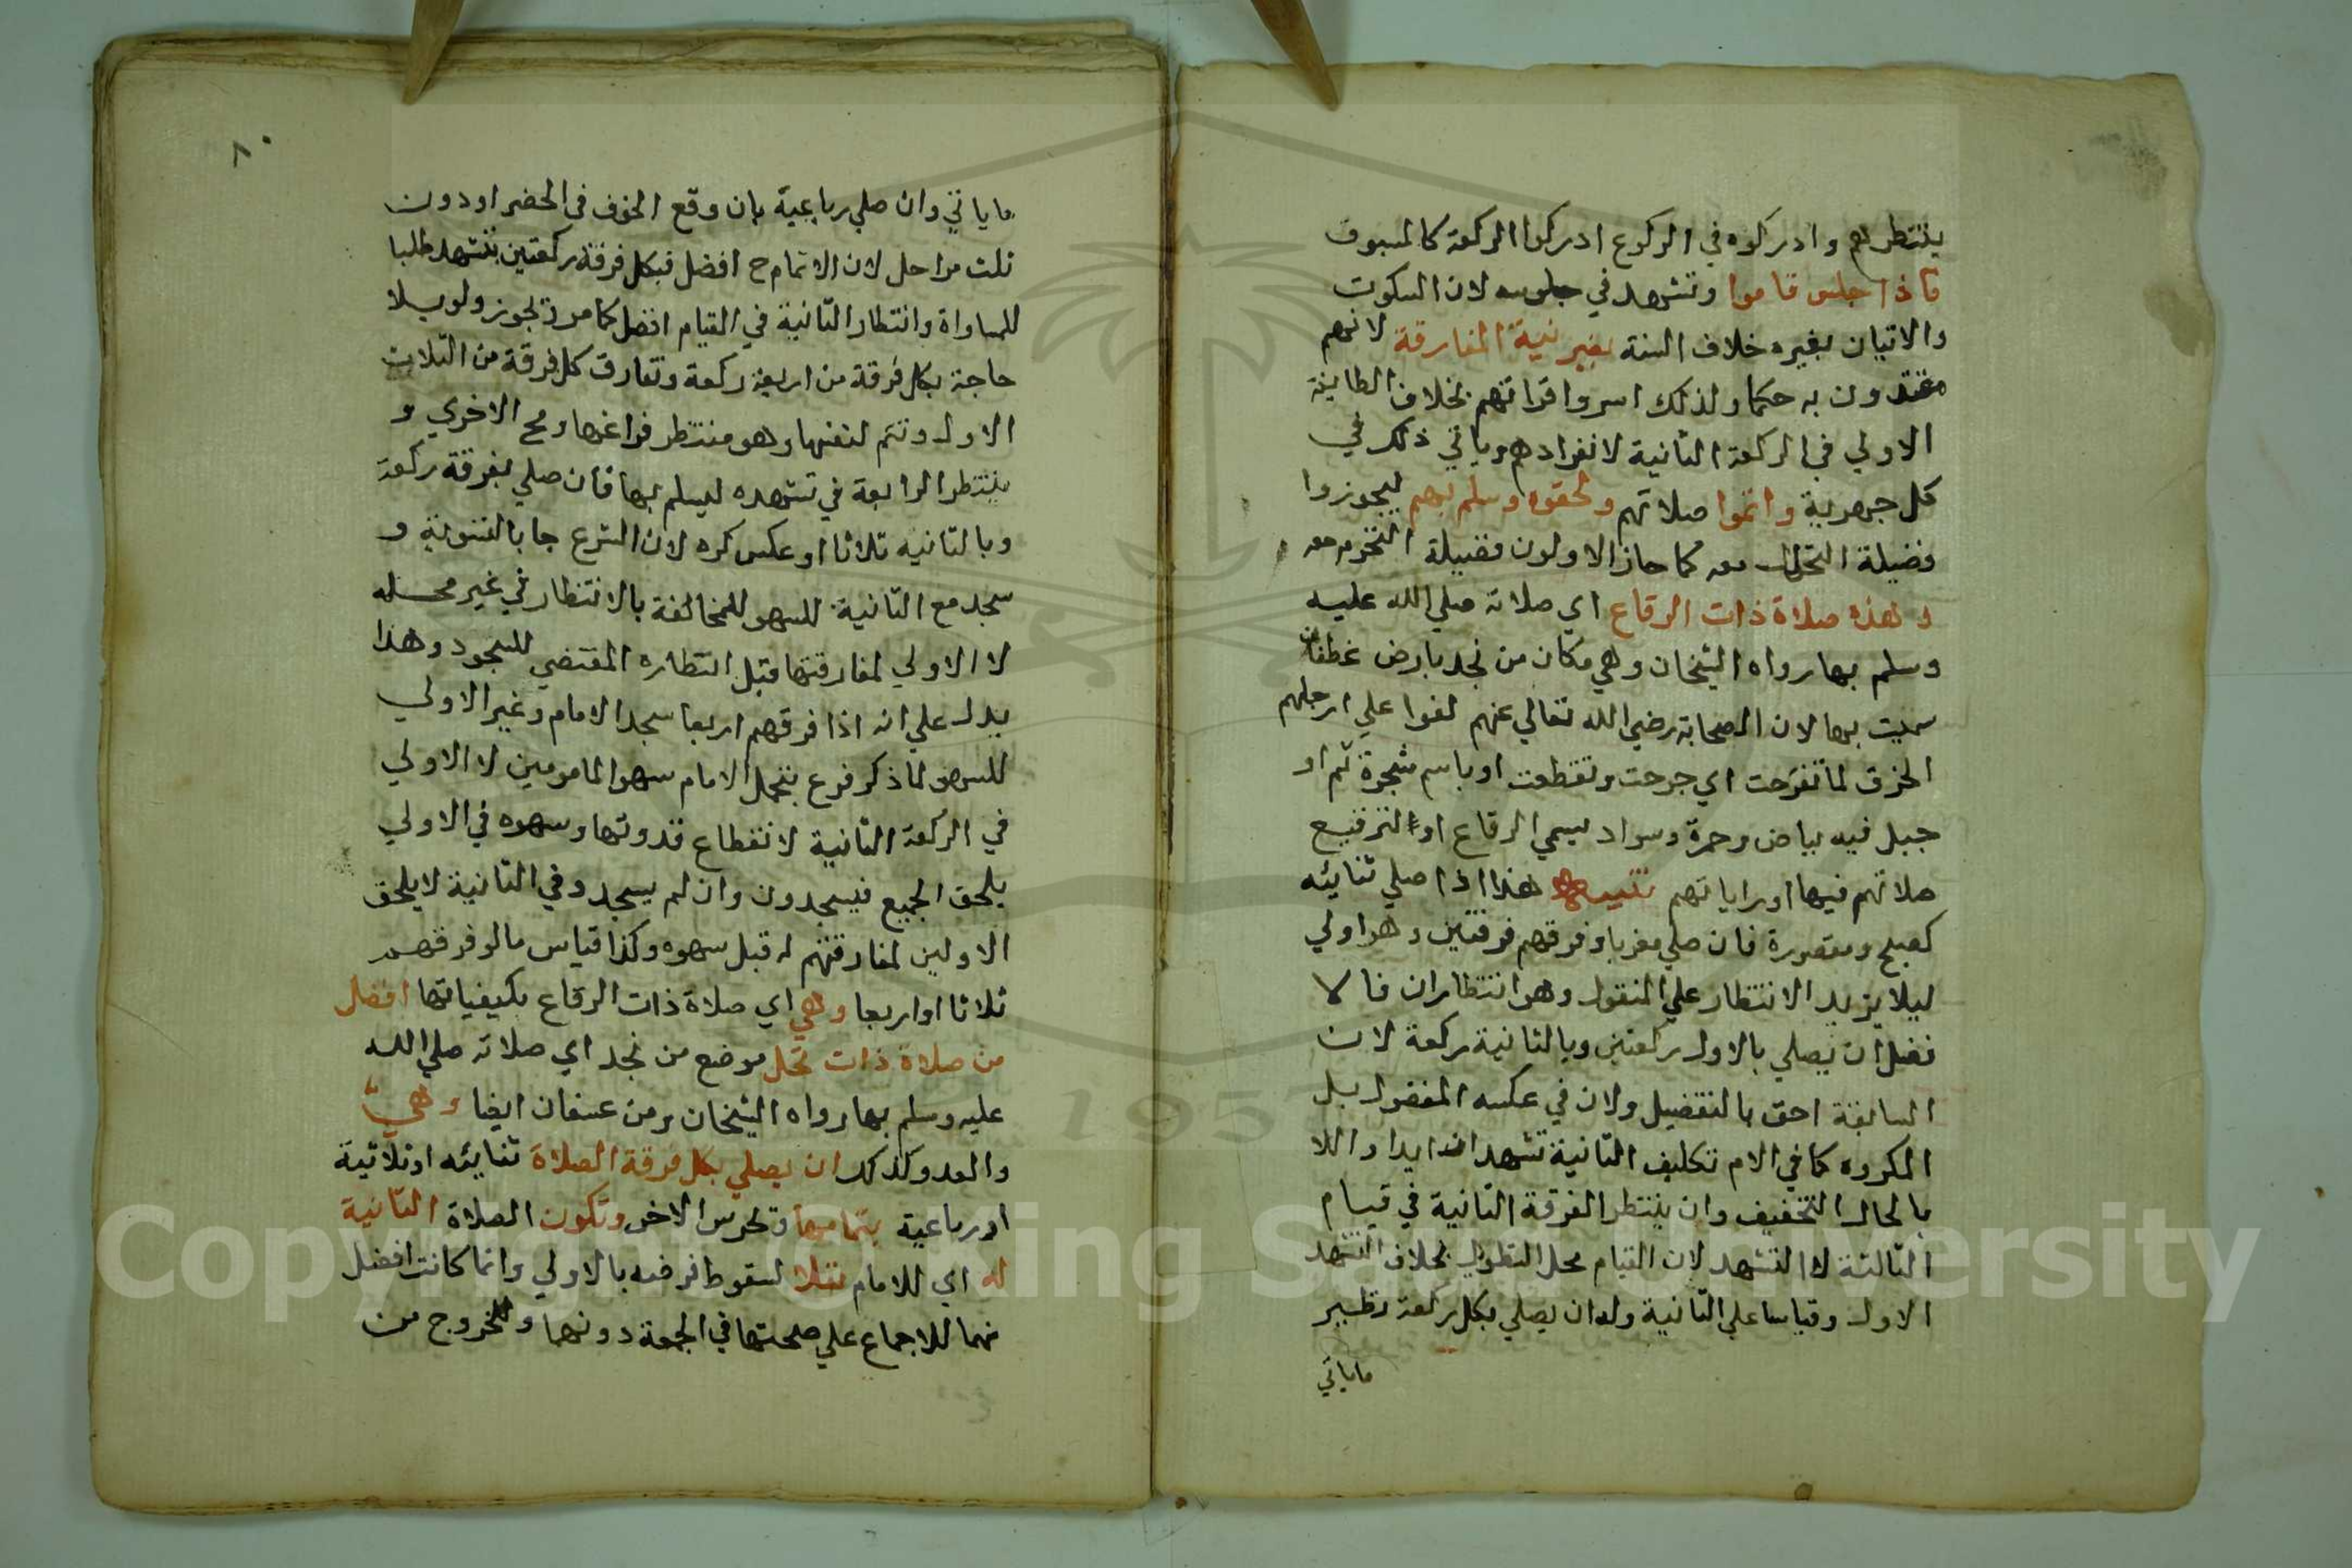 ينتظرهم وادركوه في الركوع ادركوا الركعة كالمسبوق
فاذا جلس قاموا وتشهد في جلوسه لان السكوت
والاتيان بغيره خلاف السنة بغير نية المفارقة لانهم
مقتدون به حكما ولذلك اسروا قراتهم بخلاف الطايفة
الاولي في الركعة الثانية لانفرادهم وياتي ذلك في
كل جهرية واتموا صلاتهم ولحقوه وسلم بهم ليجوزوا
فضيلة التحلل معه كما حاز الاولون فضيلة التحرم معه
وهذه صلاة ذات الرقاع اي صلاته صلي الله عليه
وسلم بها رواه الشيخان وهي مكان من نجد بارض غطفان
سميت بها لان الصحابة رضي الله تعالي عنهم لفوا علي ارجلهم
الخرق لما تقرحت اي جرحت وتقطعت او باسم شجرة ثم او
جبل فيه بياض وحمرة وسواد يسمي الرقاع او لترقيع
صلاتهم فيها او راياتهم تنبيه هذا اذا صلي ثنائيه
كصبح ومقصورة فان صلي مغربا وفرقهم فرقتين وهو اولي
ليلا يزيد الانتظار علي المنقول وهو انتظاران فالا
فضل ان يصلي بالاولي ركعتين وبالثانية ركعة لان
السابقة احق بالتفضيل ولان في عكسه المفضول بل
المكروه كما في الام تكليف الثانية تشهدا زايدا واللا
بالحال التخفيف وان ينتظر الفرقة الثانية في قيام
الثالثة لا التشهد لان القيام محل التطويل بخلاف التشهد
الاول وقياسا علي الثانية وله ان يصلي بكل ركعة نظير
ماياتي
٨٠
ماياتي وان صلي رباعية بان وقع الخوف في الحضر او دون
ثلث مراحل لان الاتمام ح افضل فبكل فرقة ركعتين بتشهد طلبا
للمساواة وانتظار الثانية في القيام افضل كما مر وتجوز ولو بلا
حاجة بكل فرقة من اربعة ركعة وتفارق كل فرقة من الثلاث
الاول وتتم لنفسها وهو منتظر فراغها ومجي الاخري و
ينتظر الرابعة في تشهده ليسلم بها فان صلي بفرقة ركعة
وبالثانيه ثلاثا او عكس كره لان الشرع جا بالتسوية و
سجد مع الثانية للسهو للمخالفة بالانتظار في غير محله
لا الاولي لمفارقتها قبل انتظاره المقتضي للسجود وهذا
يدل علي انه اذا فرقهم اربعا سجد الامام وغير الاولي
للسهو لما ذكر فرع يتحمل الامام سهو المامومين لا الاولي
في الركعة الثانية لانقطاع قدوتها وسهوه في الاولي
يلحق الجميع فيسجدون وان لم يسجد وفي الثانية لا يلحق
الاولين لمفارقتهم له قبل سهوه وكذا قياس ما لو فرقهم
ثلاثا او اربعا وهي اي صلاة ذات الرقاع بكيفياتها افضل
من صلاة ذات نخل موضع من نجد اي صلاته صلي الله
عليه وسلم بها رواه الشيخان ومن عسفان ايضا وهي
والعدو كذلك ان يصلي بكل فرقة الصلاة ثنائيه او ثلاثية
او رباعية بتمامها وتحرس الاخر وتكون الصلاة الثانية
له اي للامام نفلا لسقوط فرضه بالاولي وانما كانت افضل
منهما للاجماع علي صحتها في الجمعة دونهما وللخروج من
Copyright © King Saud University
1957